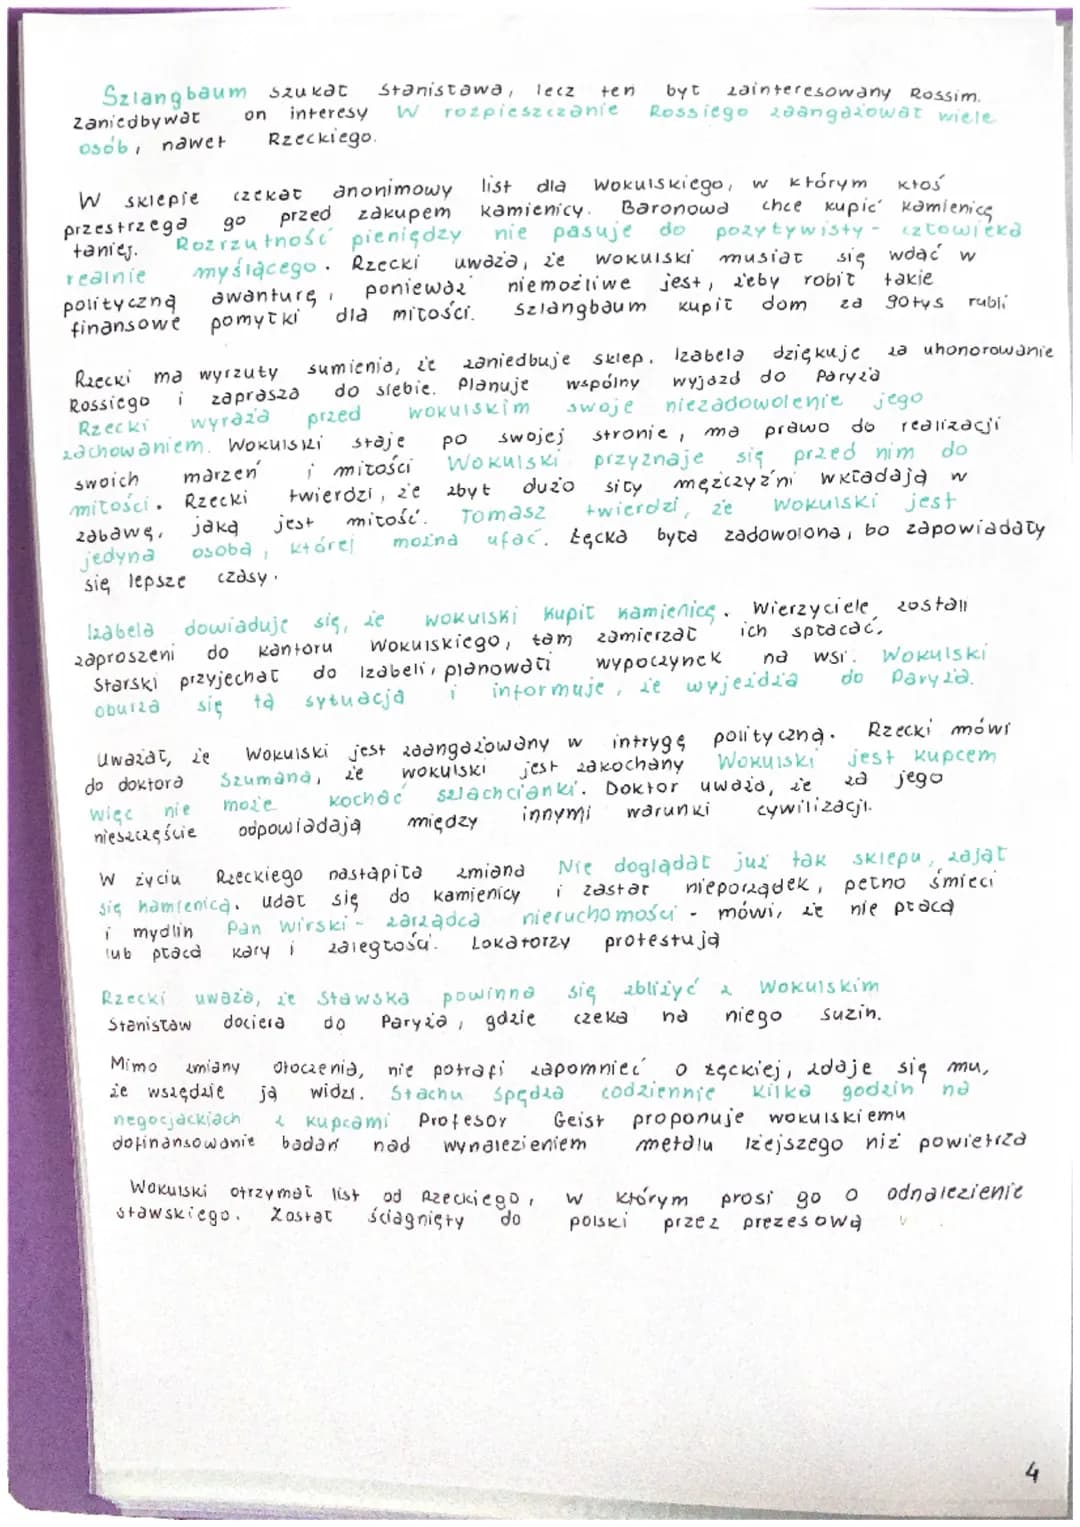 Szlangbaum szukał Stanisława, lecz ten był zainteresowany Rossim.
Zaniedbywał on interesy W rozpieszczanie Rossiego zaangażował wiele
osób, nawet Rzeckiego.
W sklepie czekał anonimowy list dla Wokulskiego, w którym ktoś
przestrzega go przed zakupem kamienicy. Baronowa chce kupić kamienicę
taniej. Rozrzutność pieniędzy nie pasuje do pozytywisty - człowieka
realnie myślącego. Rzecki uważa, że Wokulski musiał się wdać w
polityczną awanturę, ponieważ niemożliwe jest, żeby robił takie
finansowe pomyłki dla miłości. Szlangbaum kupił dom za 90 tys rubli
Rzecki ma wyrzuty sumienia, że zaniedbuje sklep. Izabela dziękuje za uhonorowanie
Rossiego i zaprasza do siebie. Planuje wspólny wyjazd do Paryża
Rzecki wyraża przed Wokulskim swoje niezadowolenie jego
zachowaniem. Wokulski staje po swojej stronie, ma prawo do realizacji
swoich marzeń i miłości Wokulski przyznaje się przed nim do
miłości. Rzecki twierdzi, że zbyt dużo siły mężczyźni wkładają w
zabawę, jaką jest miłość. Tomasz twierdzi, że Wokulski jest
jedyna osobą, której można ufać. Łęcka była zadowolona, bo zapowiadały
się lepsze czasy.
Izabela dowiaduje się, że Wokulski kupił kamienicę. Wierzyciele zostali
zaproszeni do kantoru Wokulskiego, tam zamierzał ich spłacać.
Starski przyjechał do Izabeli, planowali wypoczynek na wsi. Wokulski
oburza się tą sytuacją i informuje, że wyjeżdża do Paryża.
Uważał, że Wokulski jest zaangażowany w intrygę polityczną. Rzecki mówi
do doktora Szumana, że Wokulski jest zakochany Wokulski jest kupcem
więc nie może kochać szlachcianki. Doktor uważa, że za jego
nieszczęście odpowiadają między innymi warunki cywilizacji.
W życiu Rzeckiego nastąpiła zmiana Nie doglądał już tak sklepu, zajął
się kamienicą. udał się do kamienicy i zastał nieporządek, pełno śmieci
i mydlin Pan Wirski - zarządca nieruchomości - mówi, że nie płacą
lub płacą kary i zaległości. Lokatorzy protestują
Rzecki uważa, że Stawska powinna się zbliżyć z Wokulskim
Stanisław dociera do Paryża, gdzie czeka na niego Suzin.
Mimo zmiany otoczenia, nie potrafi zapomnieć o Łęckiej, zdaje się mu,
że wszędzie ją widzi. Stachu spędza codziennie kilka godzin na
negocjackjach z kupcami Profesor Geist proponuje Wokulskiemu
dofinansowanie badań nad wynalezieniem metalu lżejszego niż powietrza
Wokulski otrzymał list od Rzeckiego, w którym prosi go o odnalezienie
Stawskiego. Został ściągnięty do polski przez prezesową
4